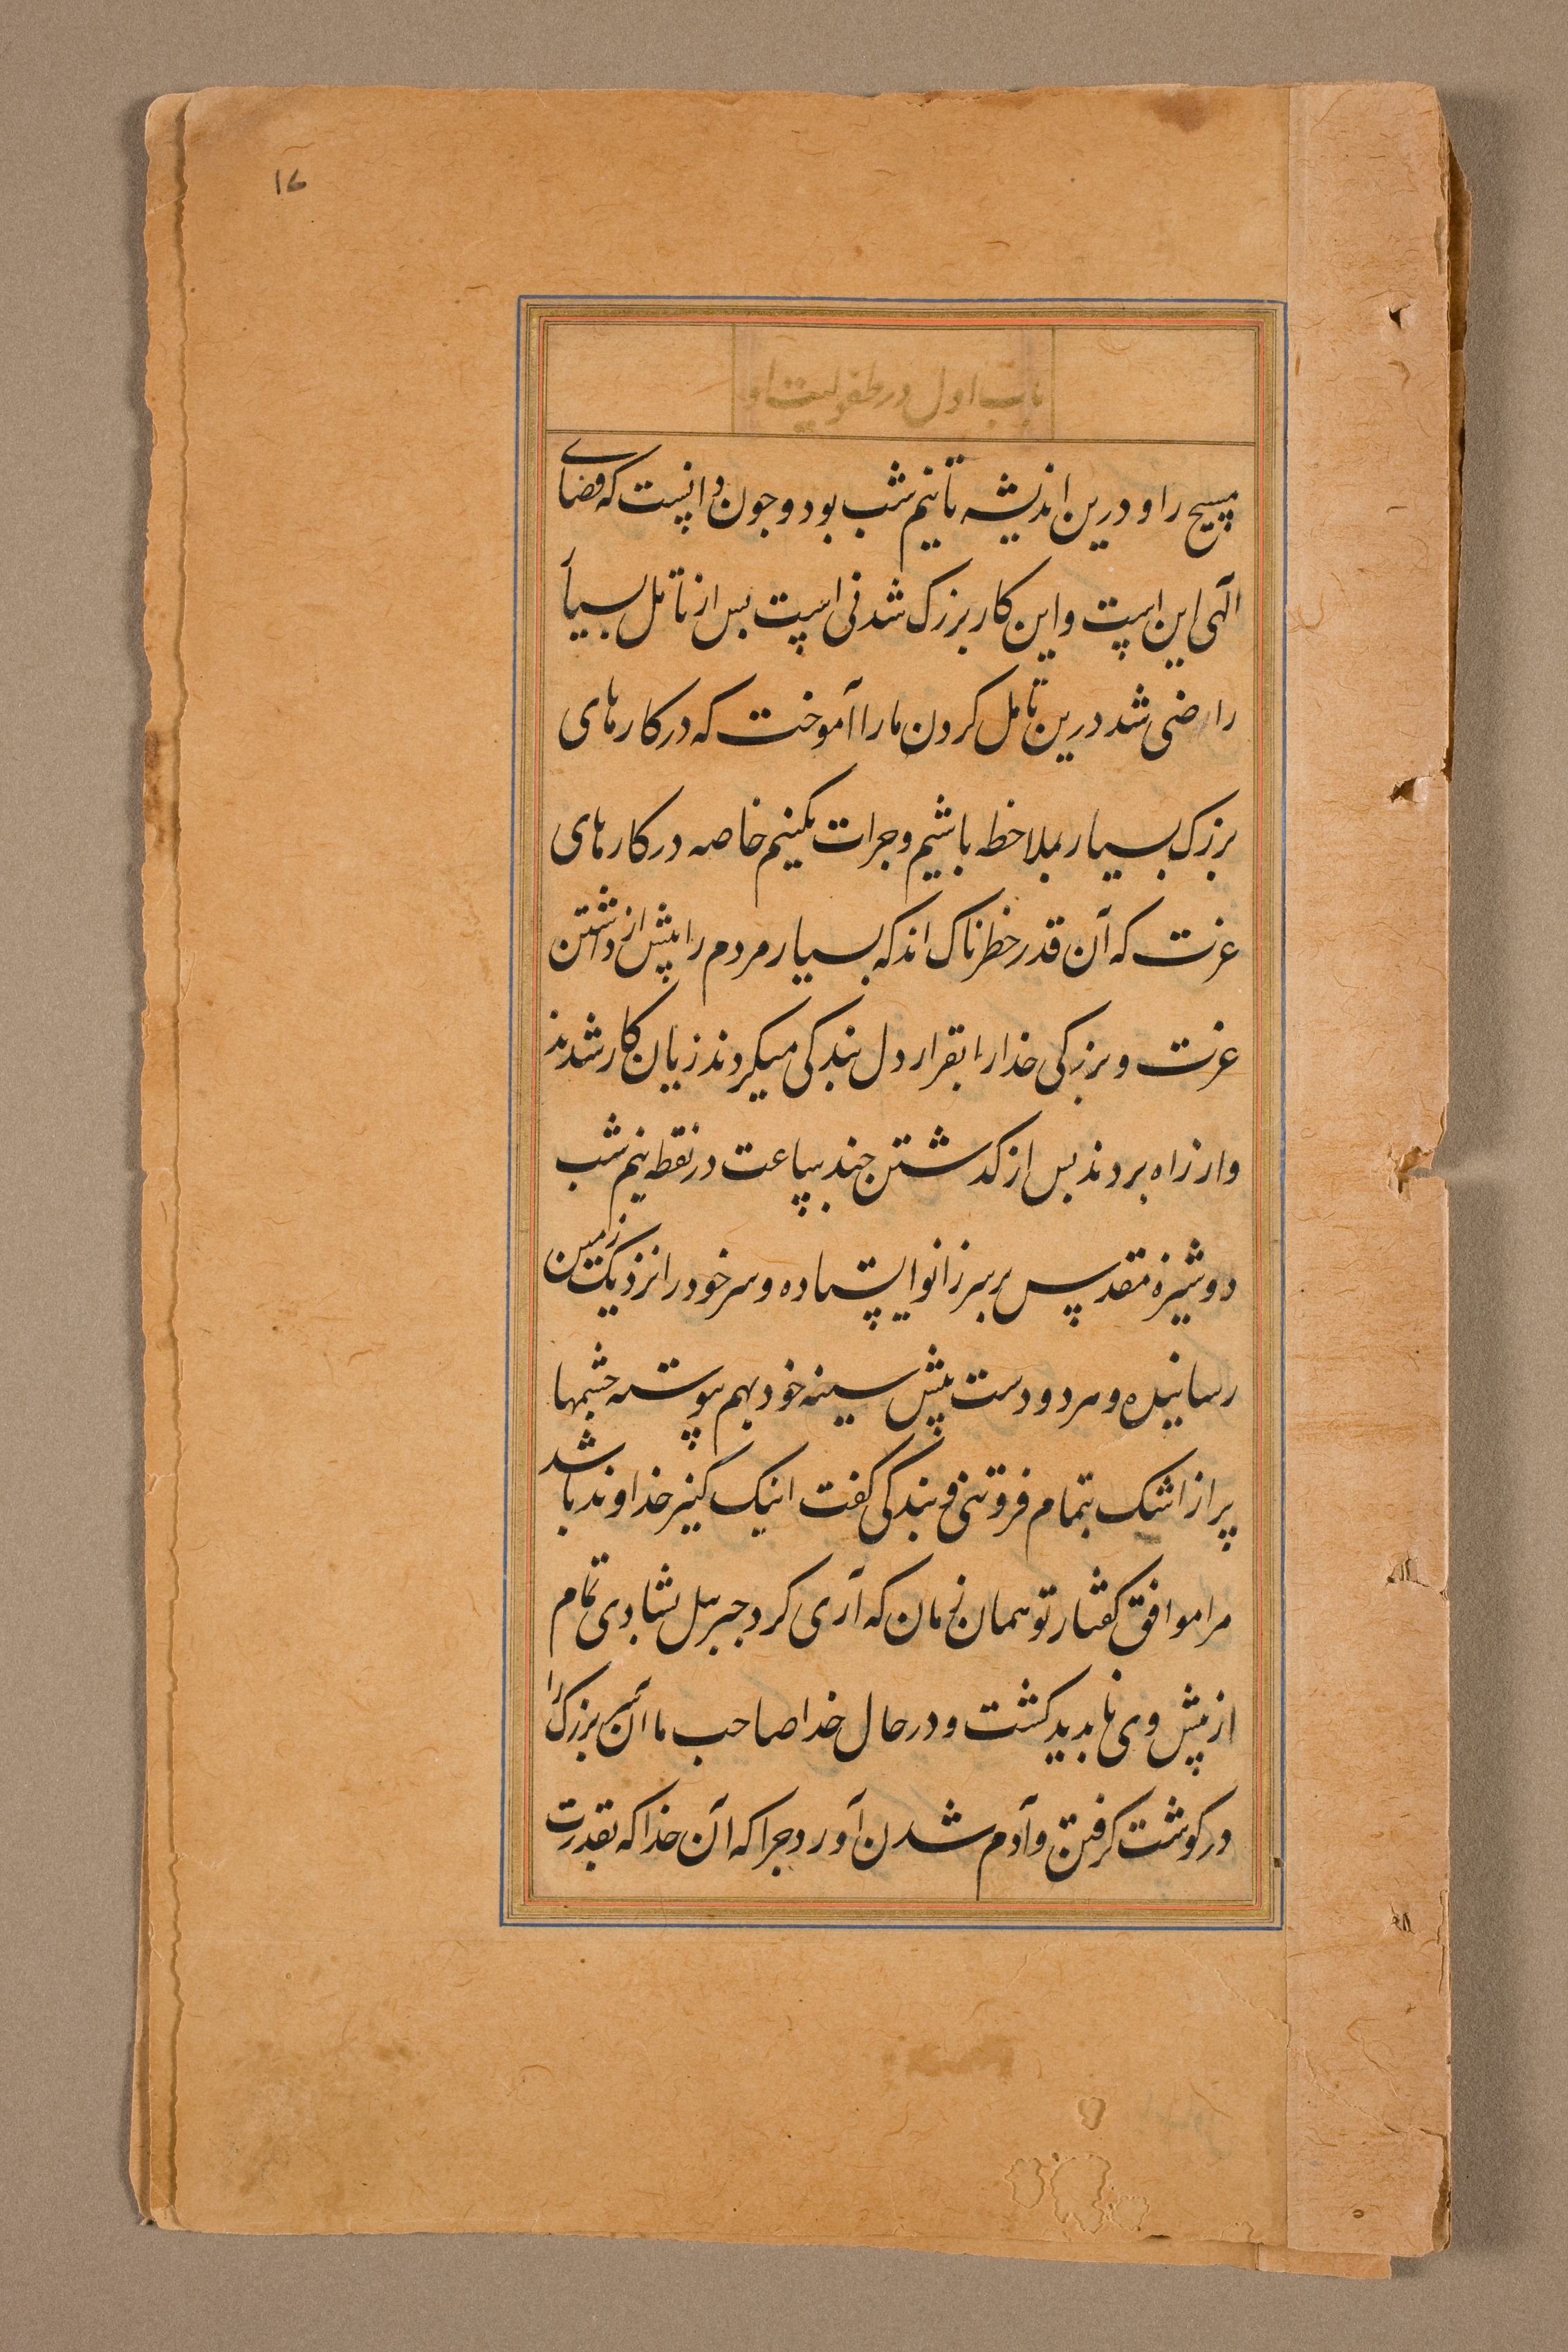 ۱۷
باب اول در طفولیت او
مسیح را و درین اندیشه تا نیم شب بود و چون دانست که قضای
الهی این است و این کار بزرک شدنی است بس از تامل بسیار
راضی شد درین تامل کردن ما را آموخت که در کارهای
بزرک بسیار بملاحظه باشیم و جرات نکنیم خاصه در کارهای
عزت که آن قدر خطرناک اند که بسیار مردم را پیش از داشتن
عزت و بزرکی خدا را بقرار دل بندکی میکردند زیان کار شدند
و از راه بردند بس از کذشتن چند ساعت در نقطه نیم شب
دوشیزه مقدس بر سر زانو ایستاده و سر خود را نزدیک زمین
رسانیده و هر دو دست پیش سینه خود بهم پیوسته چشمها
پر از اشک بتمام فروتنی و بندکی کفت اینک کنیز خداوند باشد
مرا موافق کفتار تو همان زمان که آری کرد جبریل بشادی تمام
از پیش وی نابدید کشت و در حال خدا صاحب ما آن سر بزرک را
در کوشت کرفتن و آدم شدن آورد چرا که آن خدا که بقدرت